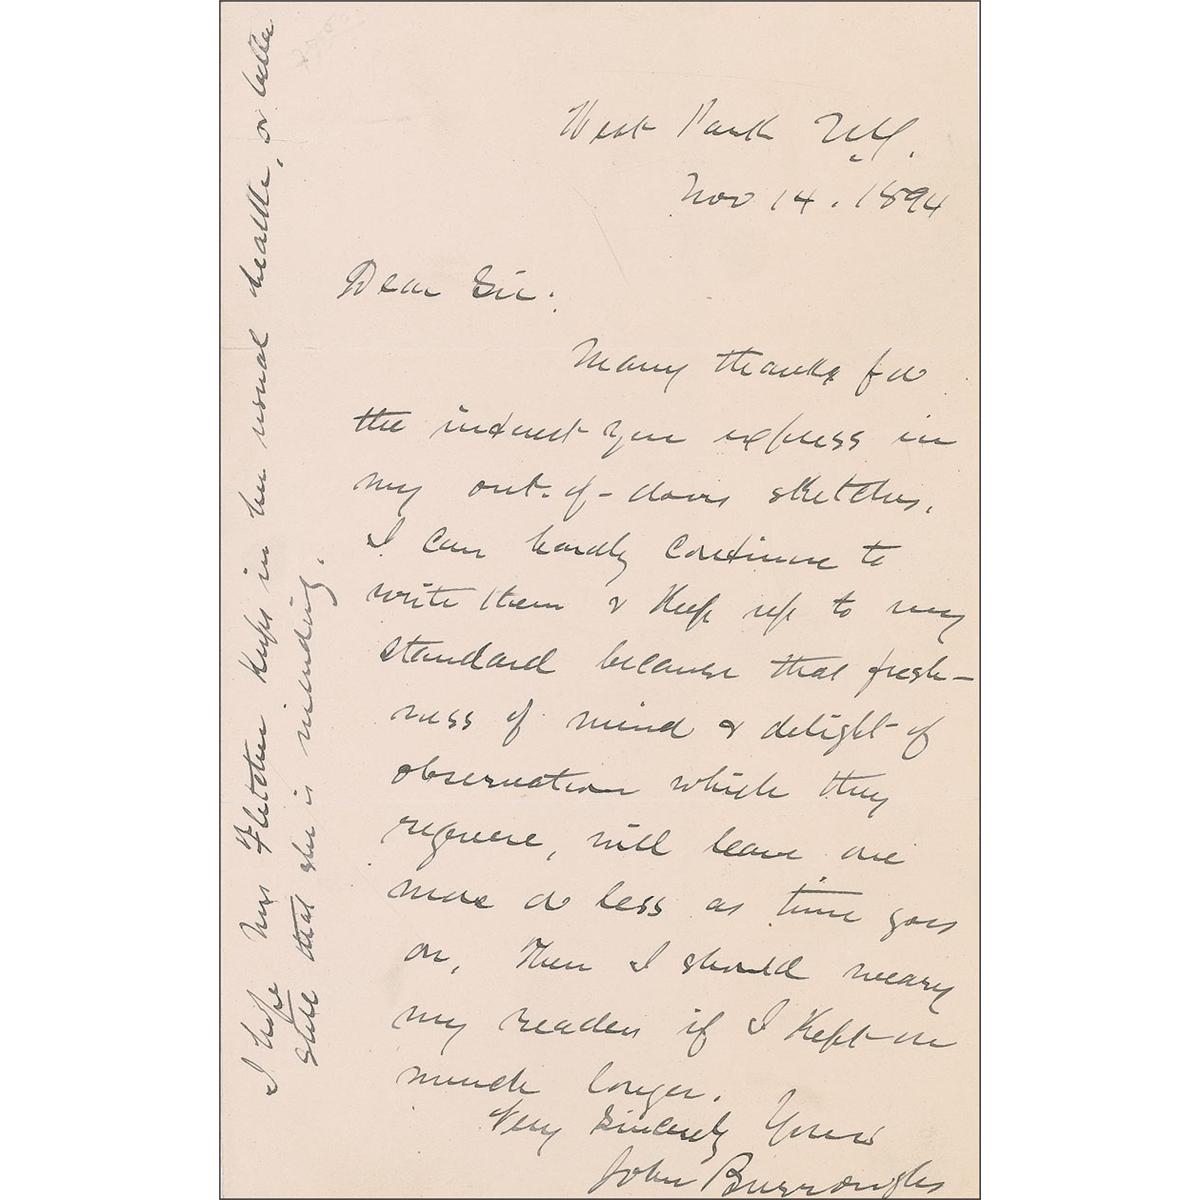 West Park N.Y.
Nov 14. 1894
Dear Sir:
Many thanks for
the interest you express in
my out-of-doors sketches.
I can hardly continue to
write them & keep up to my
standard because that fresh-
ness of mind & delight of
observation which they
require, will leave one
more or less as time goes
on. Then I should weary
my readers if I kept on
much longer.
Very Sincerely Yours
John Burroughs
I hope Mrs Fletcher keeps in her usual health, or better
still that she is mending.